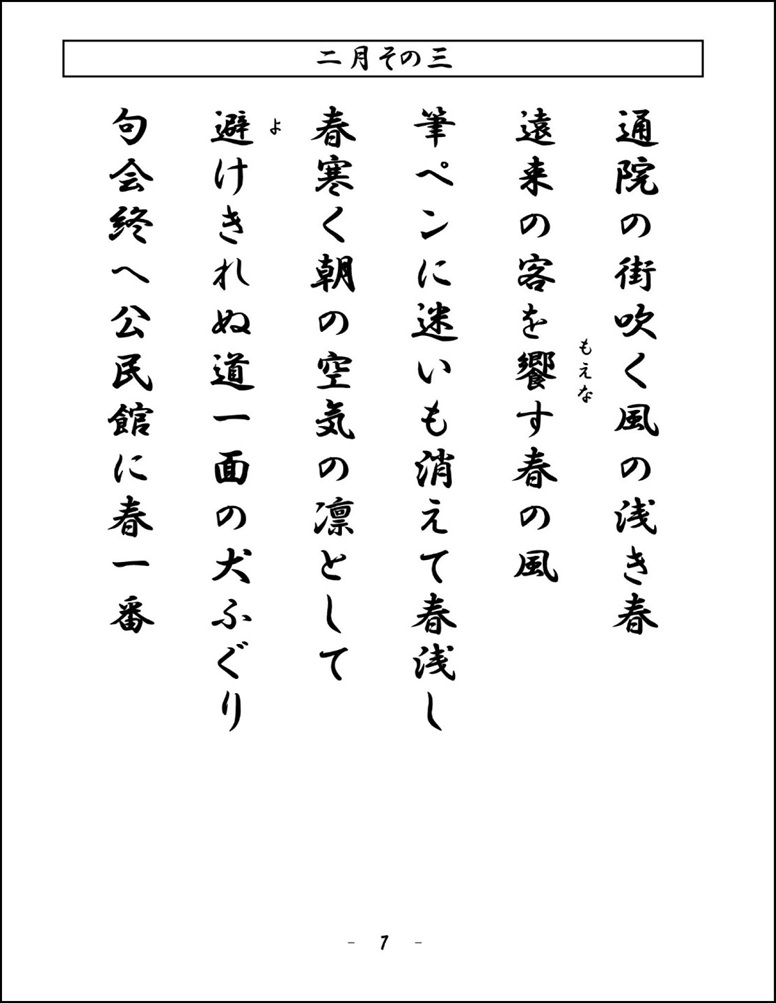 二月その三
通院の街吹く風の浅き春
遠来の客を饗す春の風
もえな
筆ペンに迷いも消えて春浅し
春寒く朝の空気の凛として
避けきれぬ道一面の犬ふぐり
よ
句会終へ公民館に春一番
- 7 -